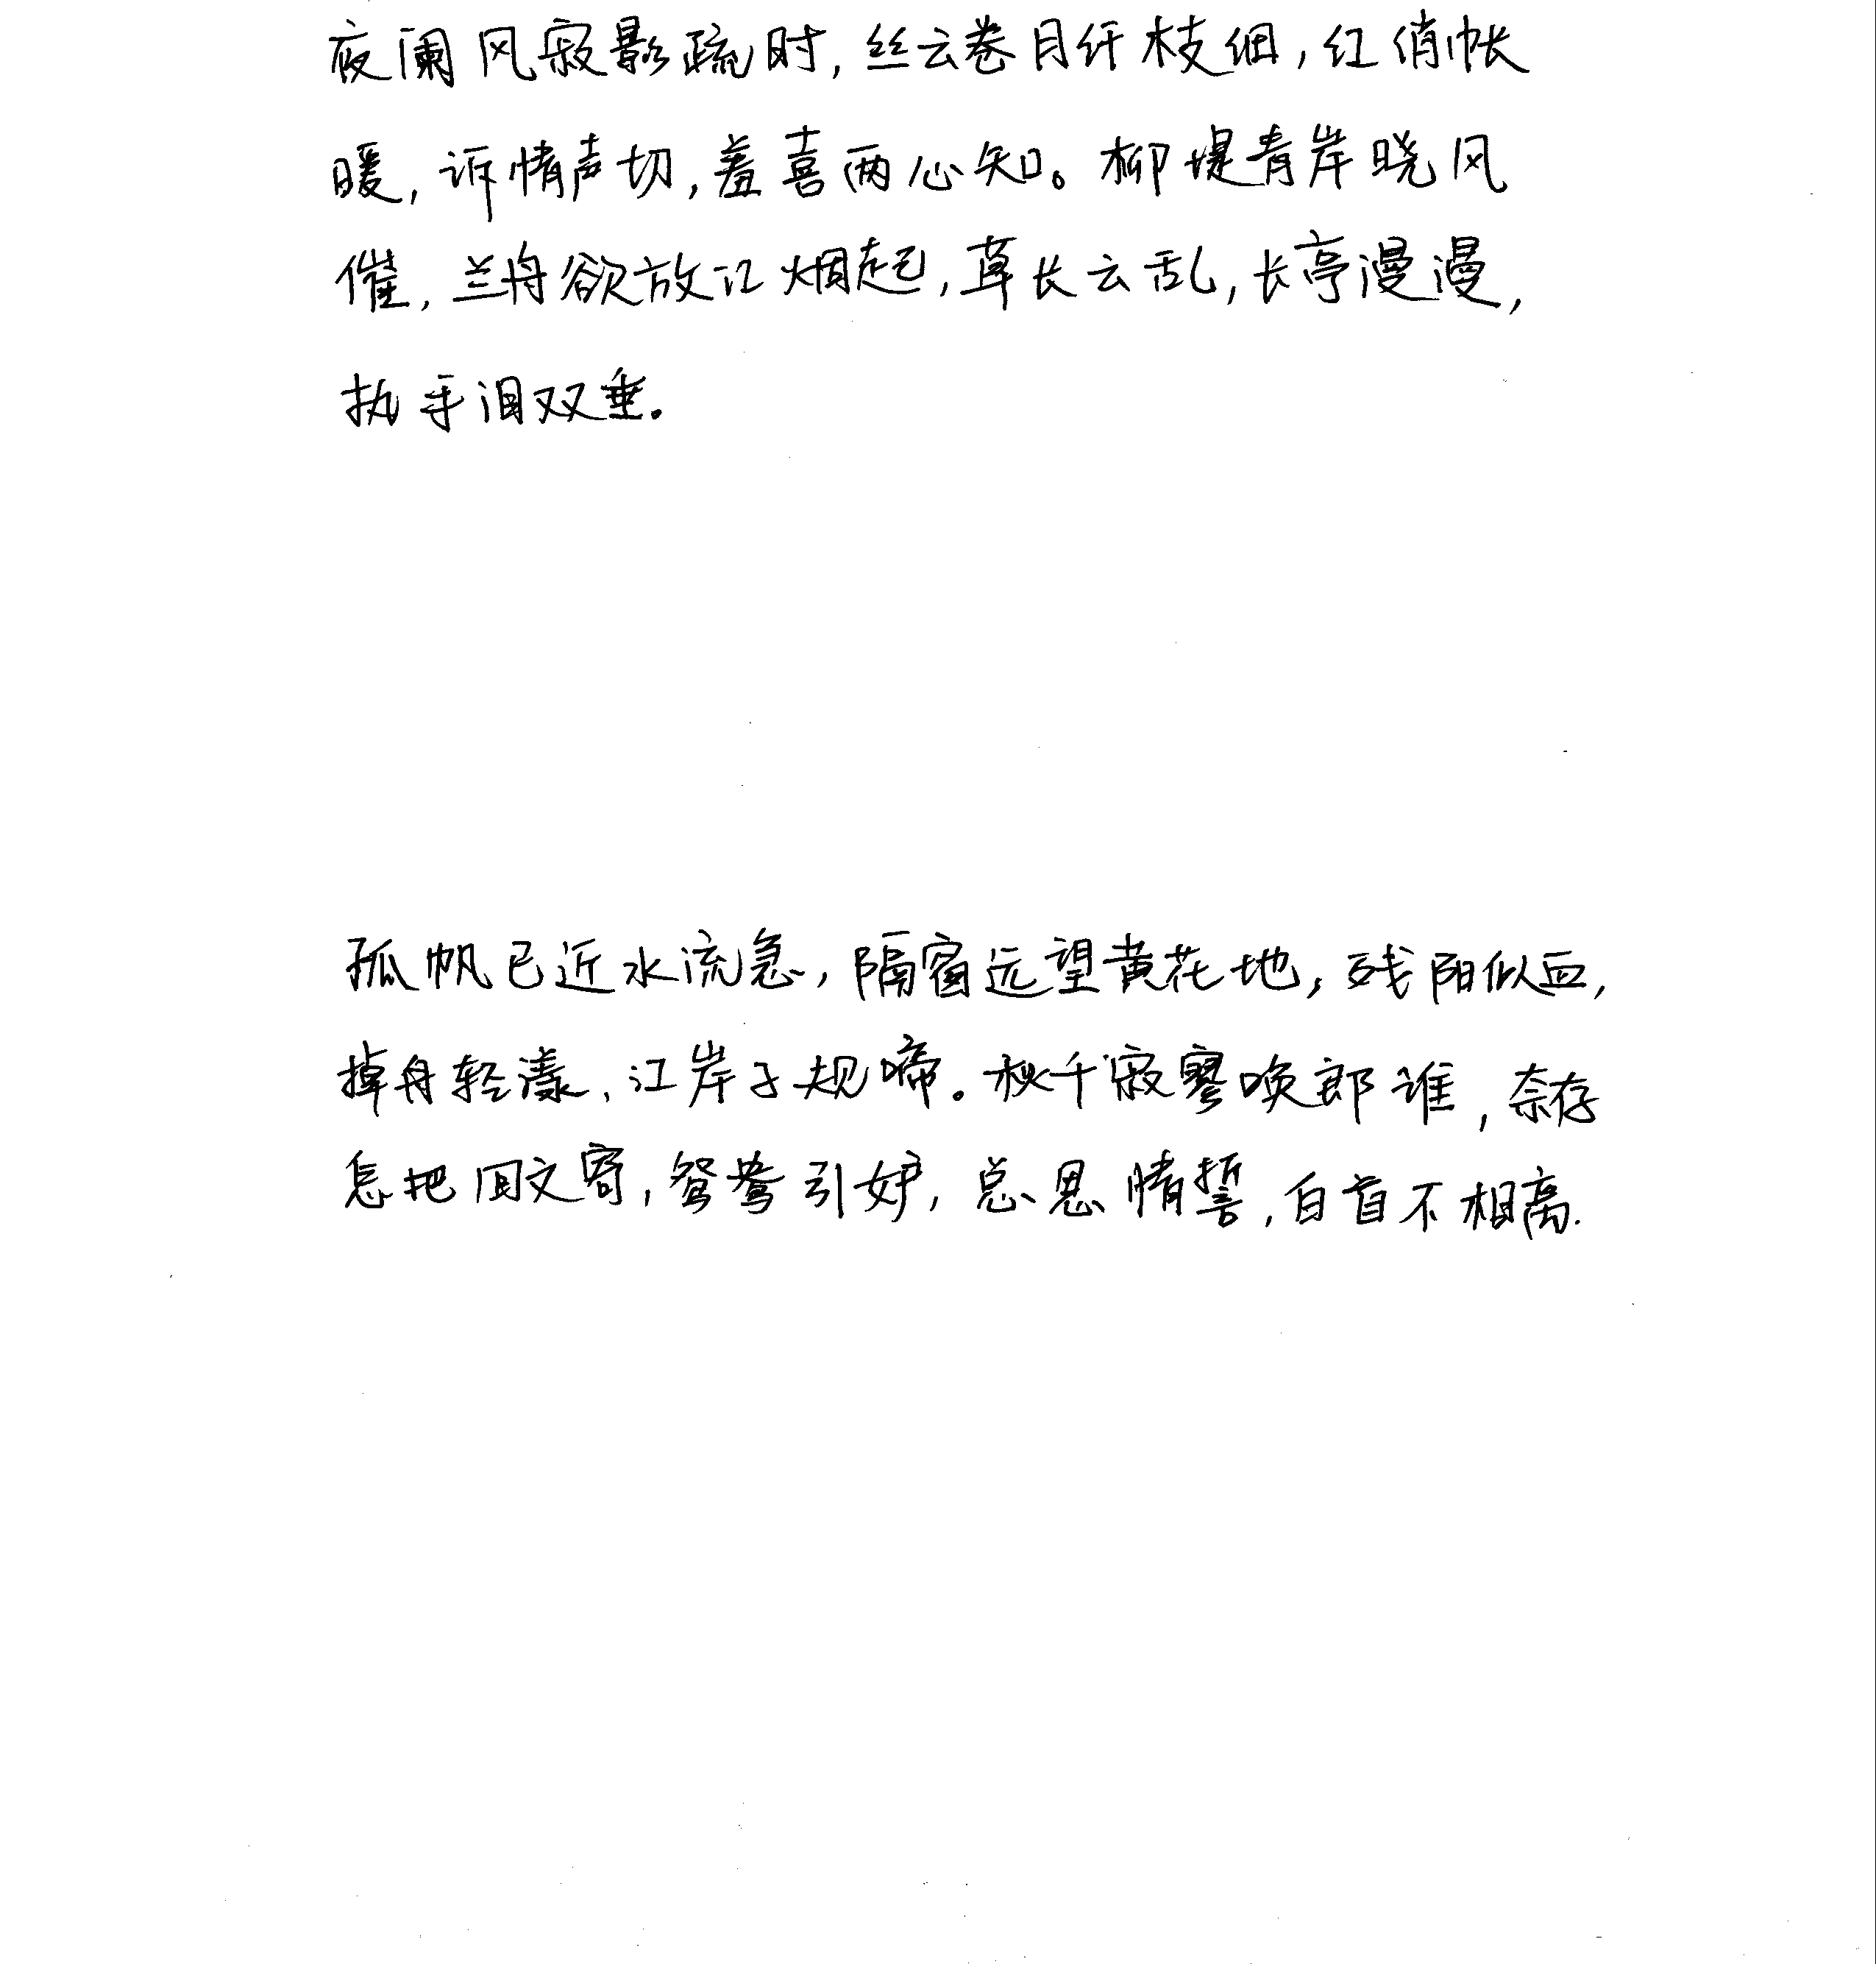 夜阑风寂影疏时,丝云卷月纤枝细,红俏帐
暖,诉情声切,羞喜两心知。柳堤青岸晓风
催,兰舟欲放江烟起,草长云乱,长亭漫漫,
执手泪双垂.
孤帆已近水流急,隔窗远望黄花地,残阳似血,
掉舟轻漾,江岸子规啼.秋千寂寥唤郎谁,奈存
怎把回文寄,鸳鸯引妒,总思情誓,白首不相离.